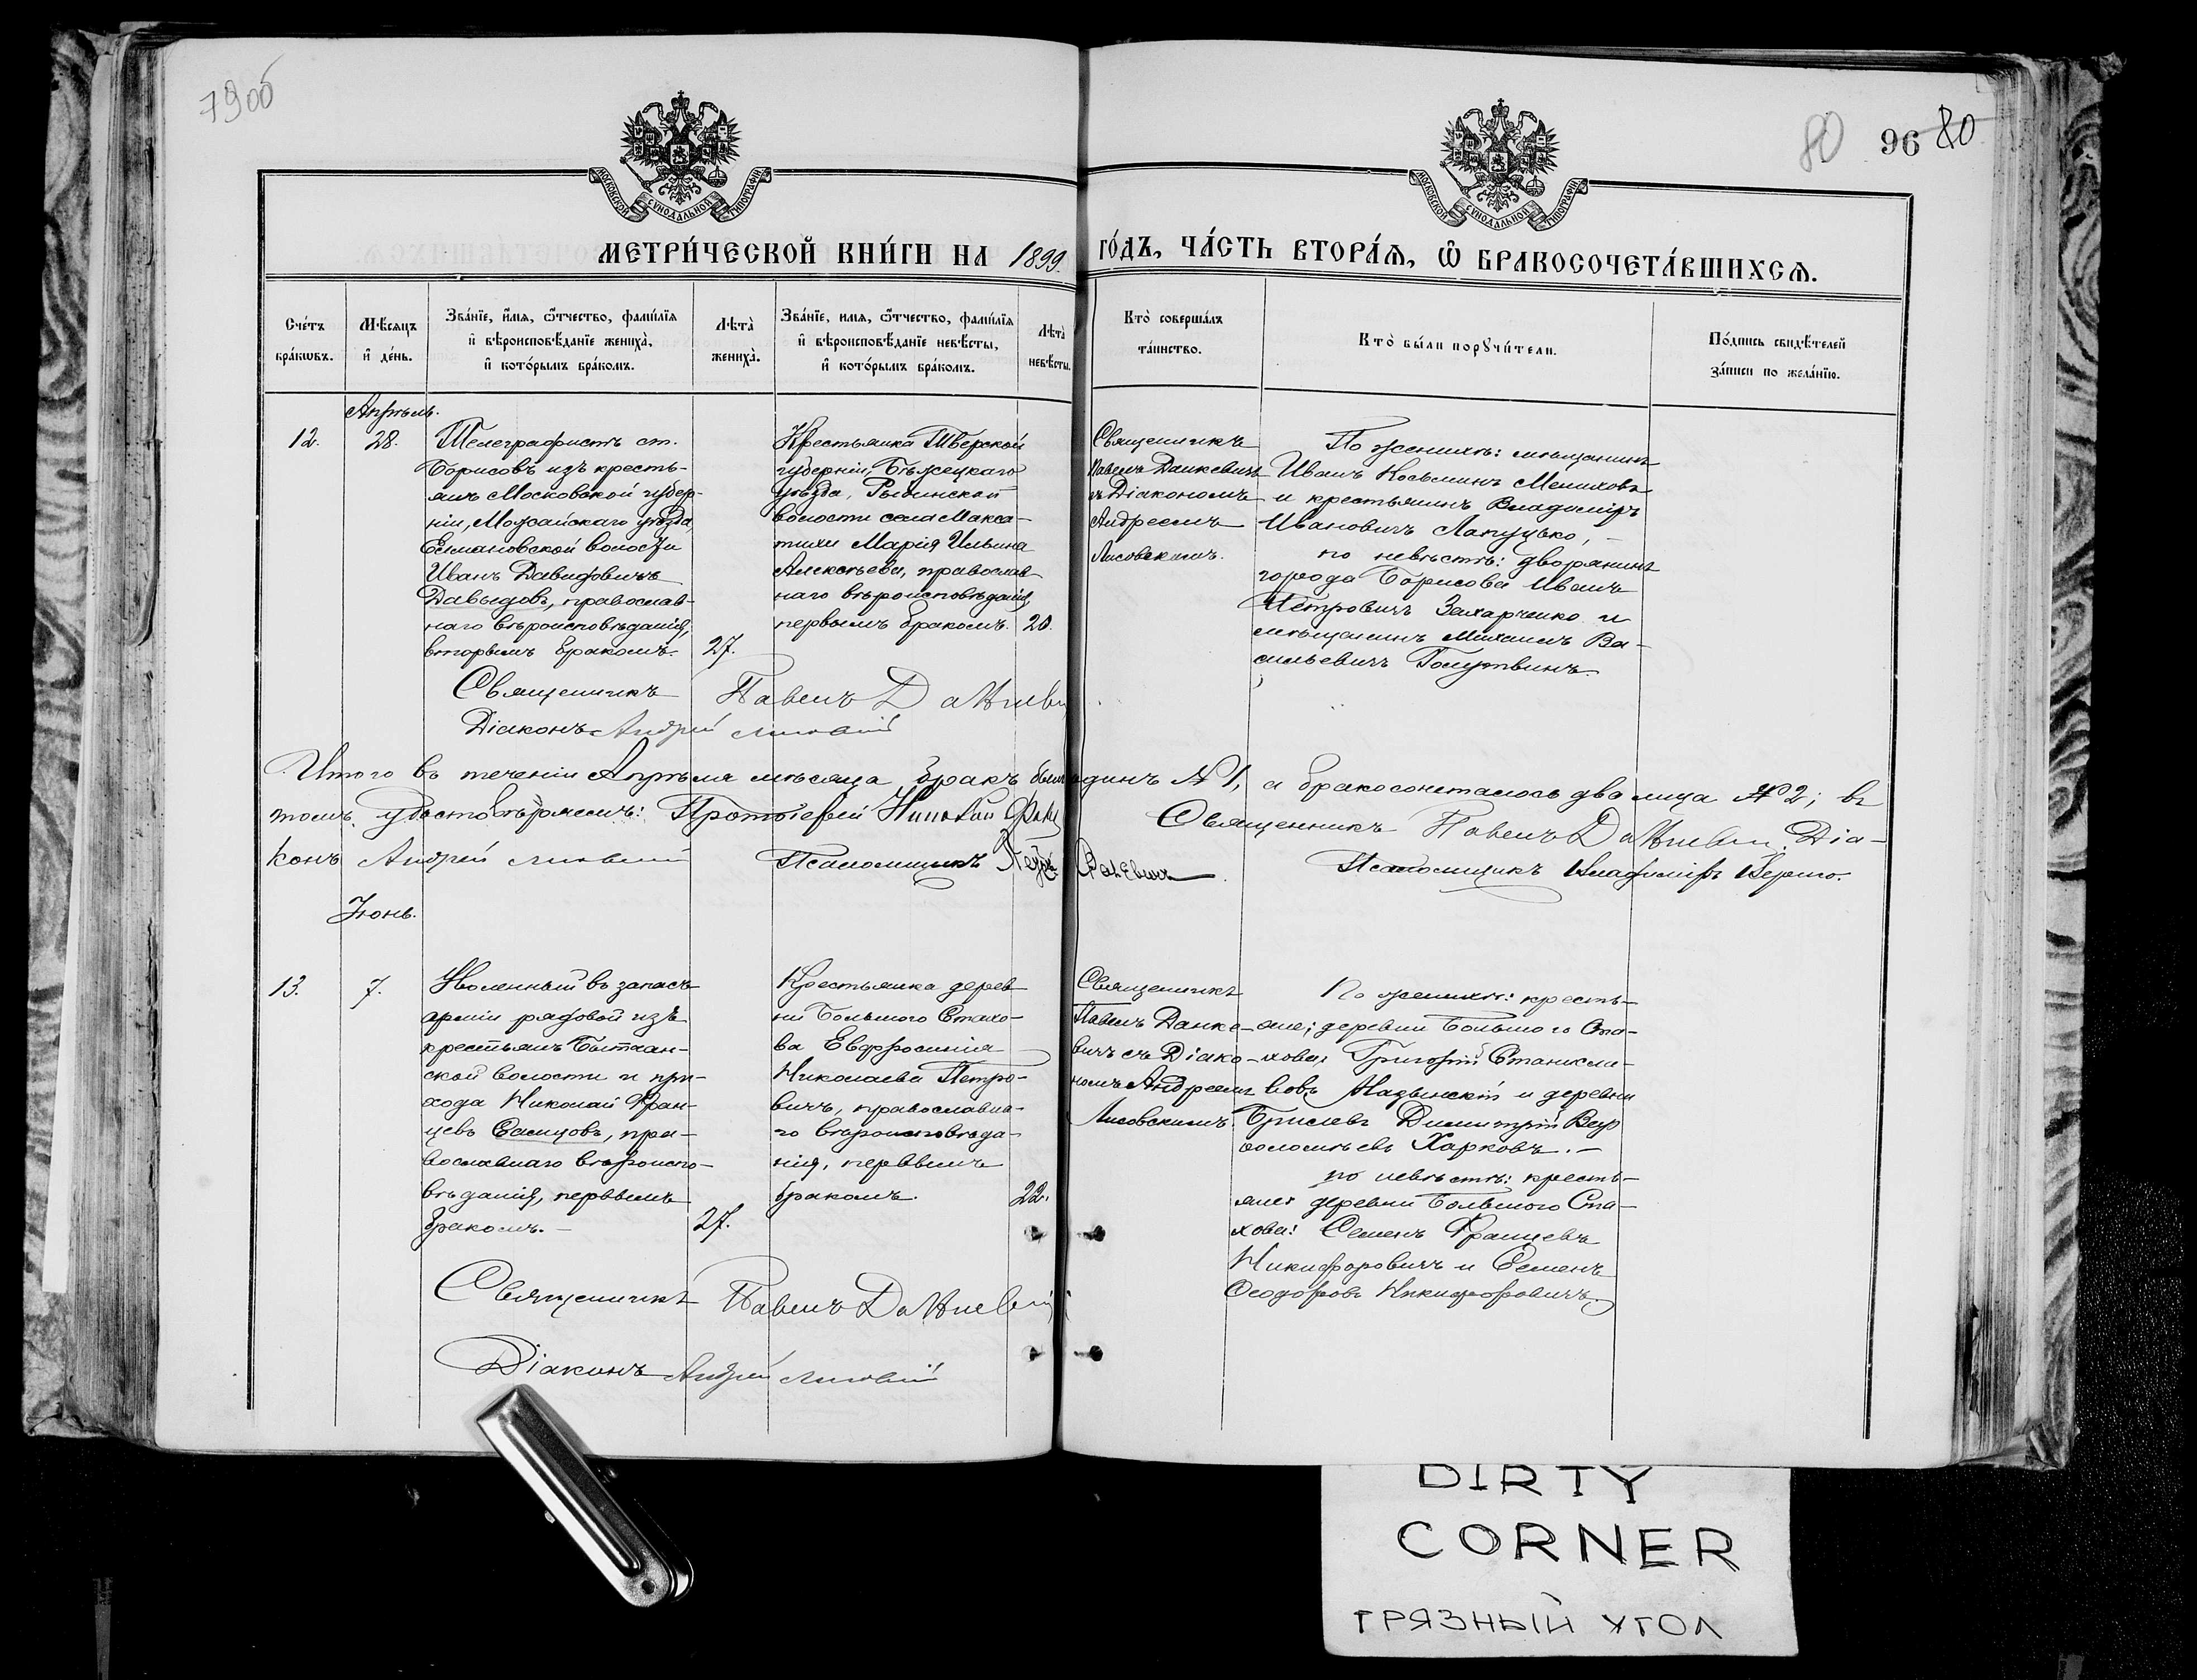 79об
80 96 80
МОСКОВСКОЙ СУНОДАЛЬНОЙ ТИПОГРАФІИ
МОСКОВСКОЙ СУНОДАЛЬНОЙ ТИПОГРАФІИ
МЕТРИ́ЧЕСКОЙ КНИ́ГИ НА 1899. ГО́ДЪ, ЧА́СТЬ ВТОРА́Ѧ, Ѽ БРАКОСОЧЕТА́ВШИХСѦ.
Сче́тъ
бра́кѡвъ.
Мѣ́сѧцъ
и҆ де́нь.
Зва́нїе, и҆́мѧ, ѻ҆́тчество, фамі́лїѧ
и҆ вѣроисповѣ́данїе жениха̀,
и҆ кото́рымъ бра́комъ.
Лѣта̀
жениха̀.
Зва́нїе, имѧ, ѻ҆́тчество, фамі́лїѧ
и҆ вѣроисповѣ́данїе невѣ́сты,
и҆ кото́рымъ бра́комъ.
Лѣта̀
невѣ́сты.
Кто̀ соверша́лъ
та́инство.
Кто̀ бы́ли порꙋчи́тели.
По́дпись свидѣ́телей
за́писи по жела́нїю.
Апрѣль.
12.
28.
Телеграфистъ ст.
Борисовъ изъ кресть-
янъ Московской губер-
ніи, Можайскаго уѣзда,
Елмановской волости
Иванъ Давидовичъ
Давыдовъ, православ-
наго вѣроисповѣданія,
вторымъ бракомъ.
27.
Крестьянка Тверской
губерніи, Бѣжецкаго
уѣзда, Рыбинской
волости села Макса-
тихи Марія Ильина
Алексѣева, православ-
наго вѣроисповѣданія,
первымъ бракомъ.
20.
Священникъ
Павелъ Данкевичъ
съ Діакономъ
Андреемъ
Лисовскимъ.
По женихѣ: мѣщанинъ
Иванъ Косьминъ Мелиховъ
и крестьянинъ Владиміръ
Ивановичъ Лапуцько, –
по невѣстѣ: дворянинъ
города Борисова Иванъ
Петровичъ Захарченко и
мѣщанинъ Михаилъ Ва-
сильевичъ Голутвинъ.
Священникъ Павелъ Данкевич
Діаконъ Андрей Лисовскій
Итого въ теченіи Апрѣля мѣсяца бракъ былъ одинъ № 1, а бракосочеталось два лица № 2; въ
томъ удостовѣряемъ: Протоіерей Николай Священникъ Павелъ Данкевич. Діа-
конъ Андрей Лисовскій Псаломщикъ Псаломщикъ Владиміръ Вериго.
Іюнь.
13.
7.
Уволенный въ запасъ
арміи рядовой изъ
крестьянъ Бытчан-
ской волости и при-
хода Николай Фран-
цевъ Есиповъ, пра-
вославнаго вѣроиспо-
вѣданія, первымъ
бракомъ. –
27.
Крестьянка дерев-
ни Большого Стахо-
ва Евфросинія
Николаева Петро-
вичъ, православна-
го вѣроисповѣда-
нія, первымъ
бракомъ.
22.
Священникъ
Павелъ Данке-
вичъ съ Діако-
номъ Андреемъ
Лисовскимъ.
По женихѣ: кресть-
яне; деревни Большого Ста-
хова: Григорій Станисла-
вовъ и деревни
Брилевъ Димитрій Вар-
ѳоломѣевъ Харковъ. –
по невѣстѣ: кресть-
яне деревни Большого Ста-
хова: Семенъ Францевъ
Никифоровичъ и Семенъ
Ѳеодоровъ Никифоровичъ.
Священникъ Павелъ Данкевич
Діаконъ Андрей Лисовскій
DIRTY
CORNER
ГРЯЗНЫЙ УГОЛ